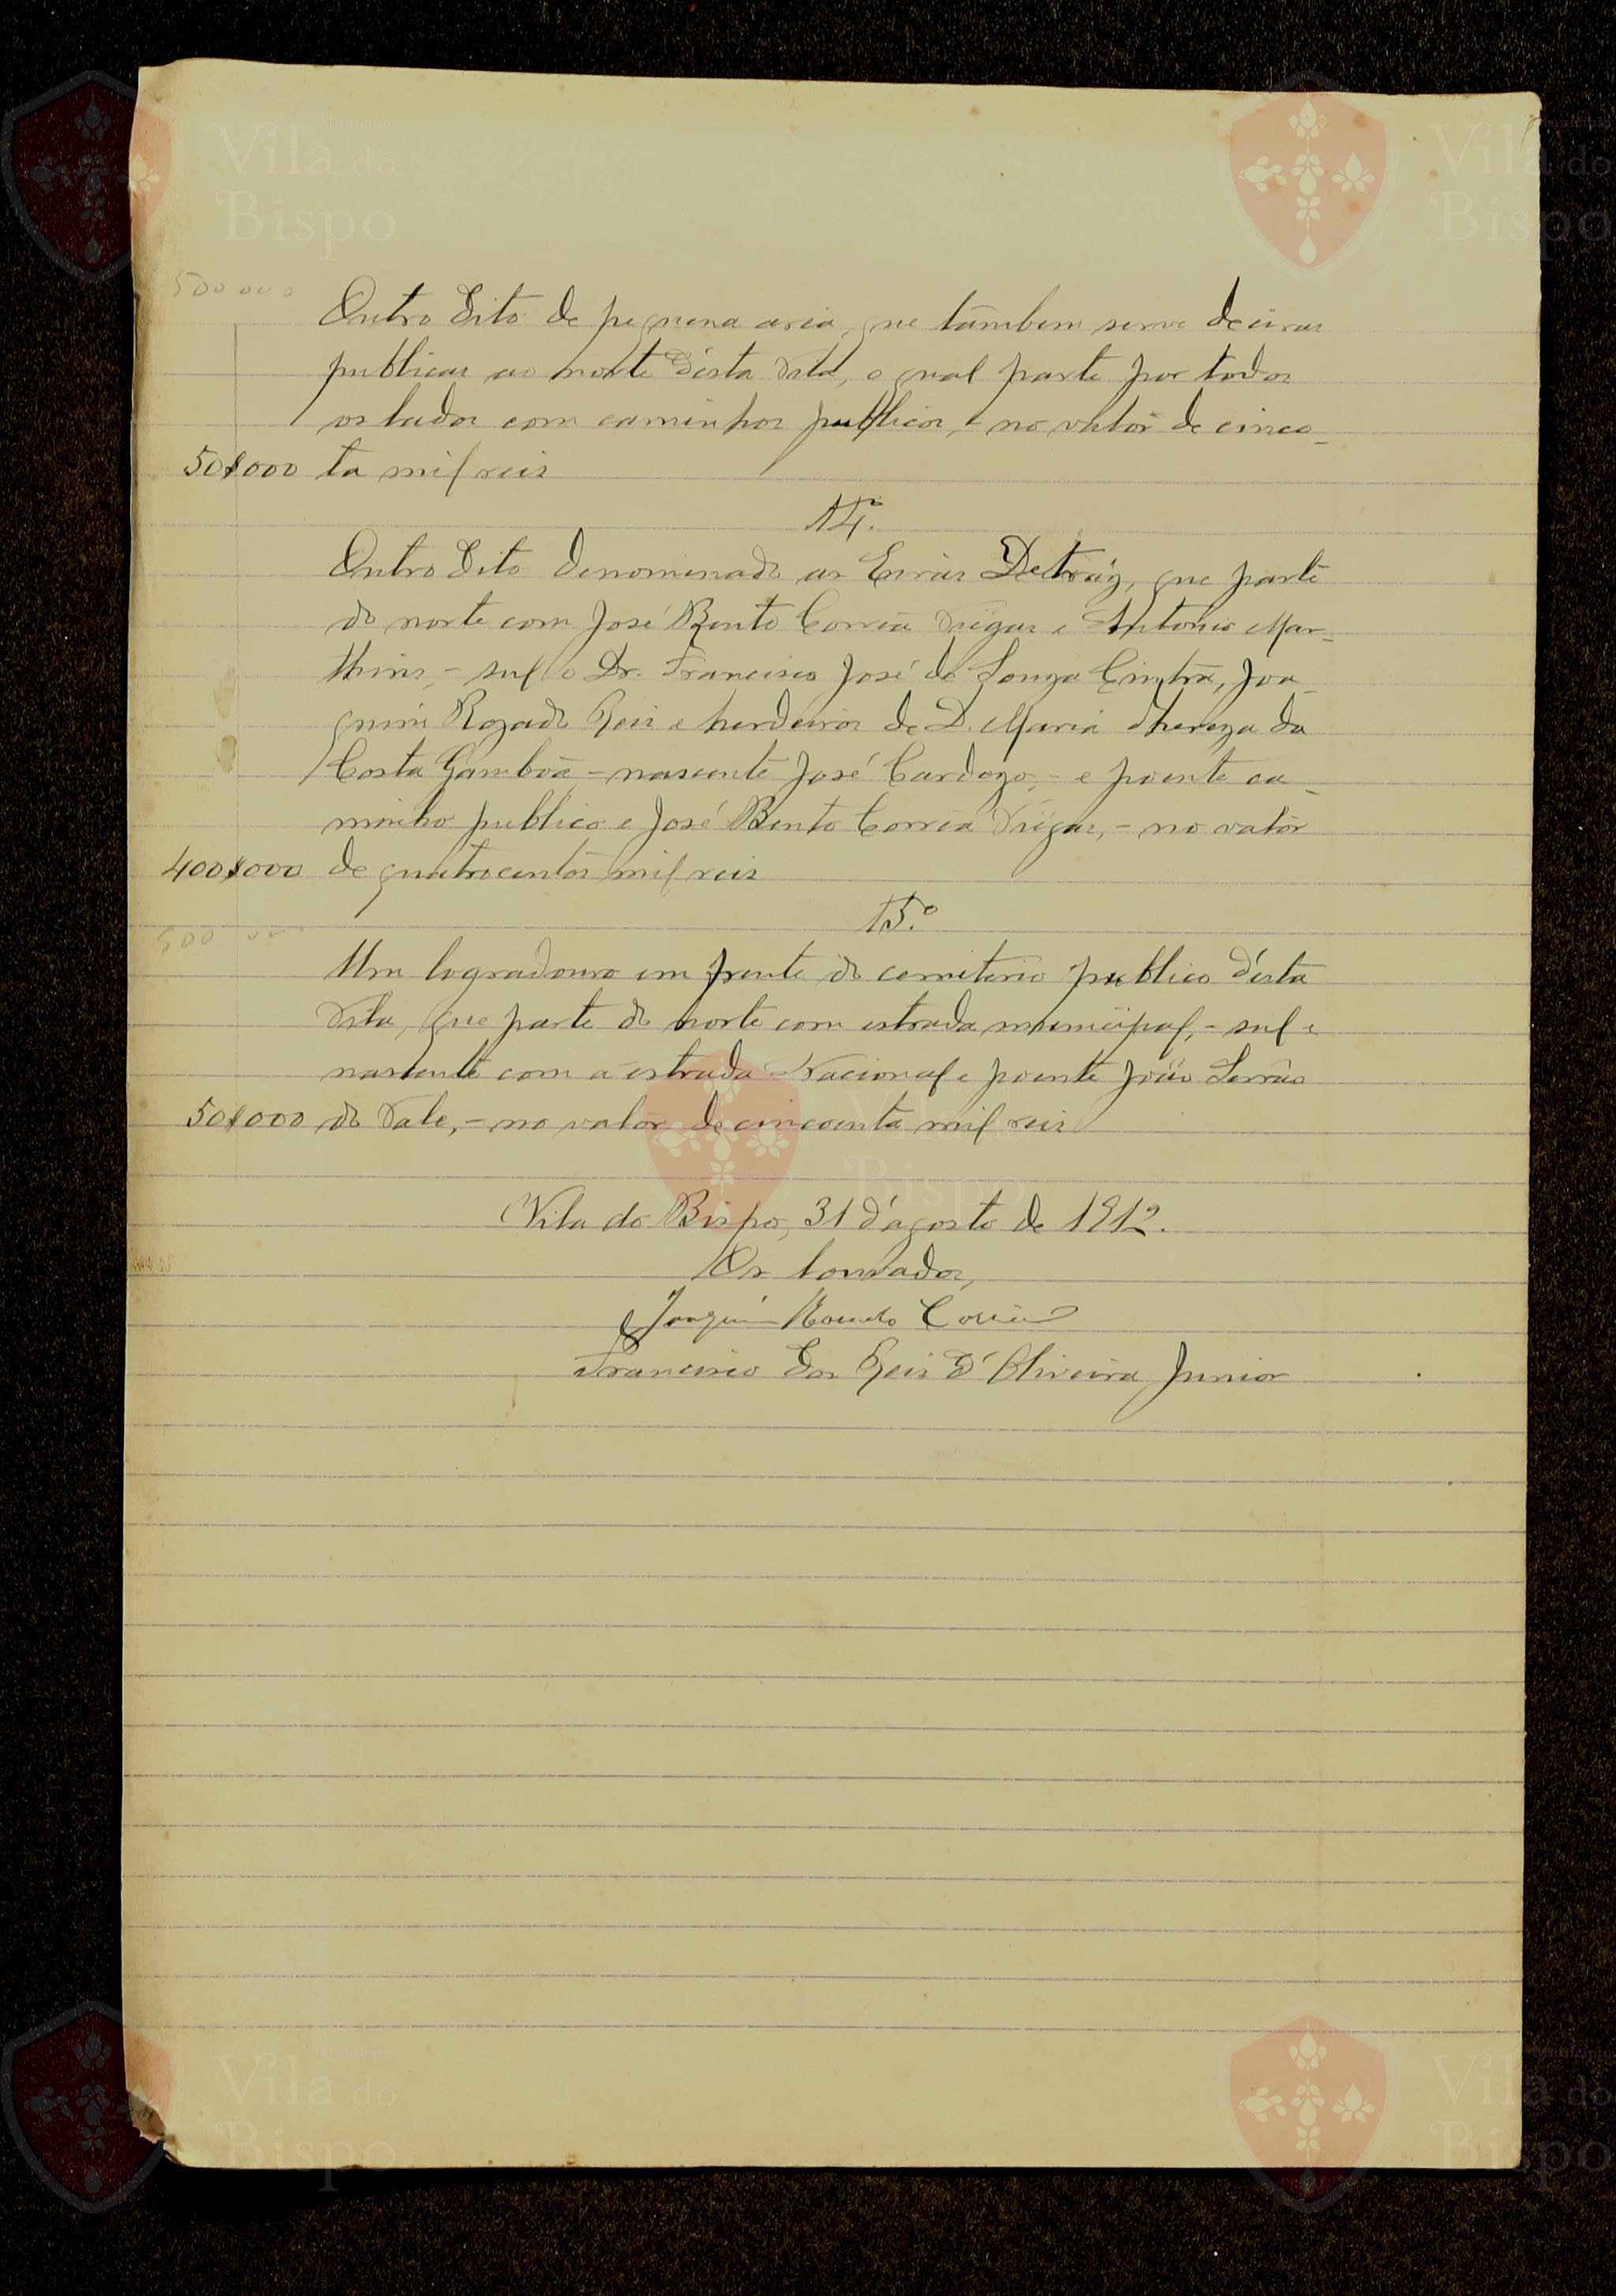 500 000
Outro dito de pequena area, que tâmbem serve de eiras
publicas ao norte d'esta Vila, o qual parte por todos
os lados com caminhos publicos, - no valôr de cinco_
50$000 ta mil reis
14.º
Outro dito denominado as Eiras Detráz, que parte
do norte com José Bento Corrêa Viegas e Antonio Mar_
thins, - sul o Dr. Francisco José de Souza Cintra, Joa_
quim Rozado Reis e herdeiros de D. Maria Thereza da
Costa Gambôa - nascente José Cardozo, - e poente ca_
minho publico e José Bento Corrêa Viegas, - no valôr
400$000 de quatrocentos mil reis
15.º
500 00
Um logradouro em frente do cemiterio publico d'esta
Vila, que parte do norte com estrada municipal, - sul e
nascente com a estrada Nacional e poente João Serrão
50$000 do Vale, - no valôr de cincoenta mil reis
Vila do Bispo, 31 d'agosto de 1912.
Os louvados,
Joaquim Corrêa
Francisco dos Reis d'Oliveira Junior
Vila do
Bispo
Município
Vila do
Bispo
Vila do
Bispo
Vila do
Bispo
Município
Vila do
Bispo